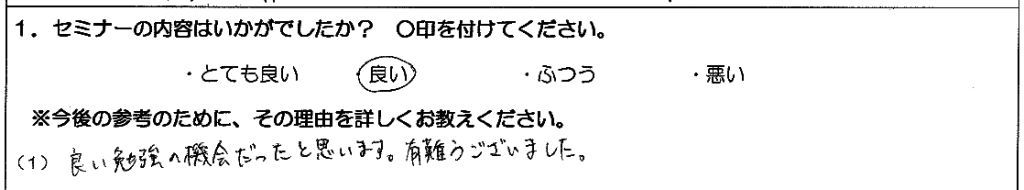 1．セミナーの内容はいかがでしたか？　〇印を付けてください。
・とても良い　良い　・ふつう　・悪い
※今後の参考のために、その理由を詳しくお教えください。
(1) 良い勉強の機会だったと思います。有難うございました。